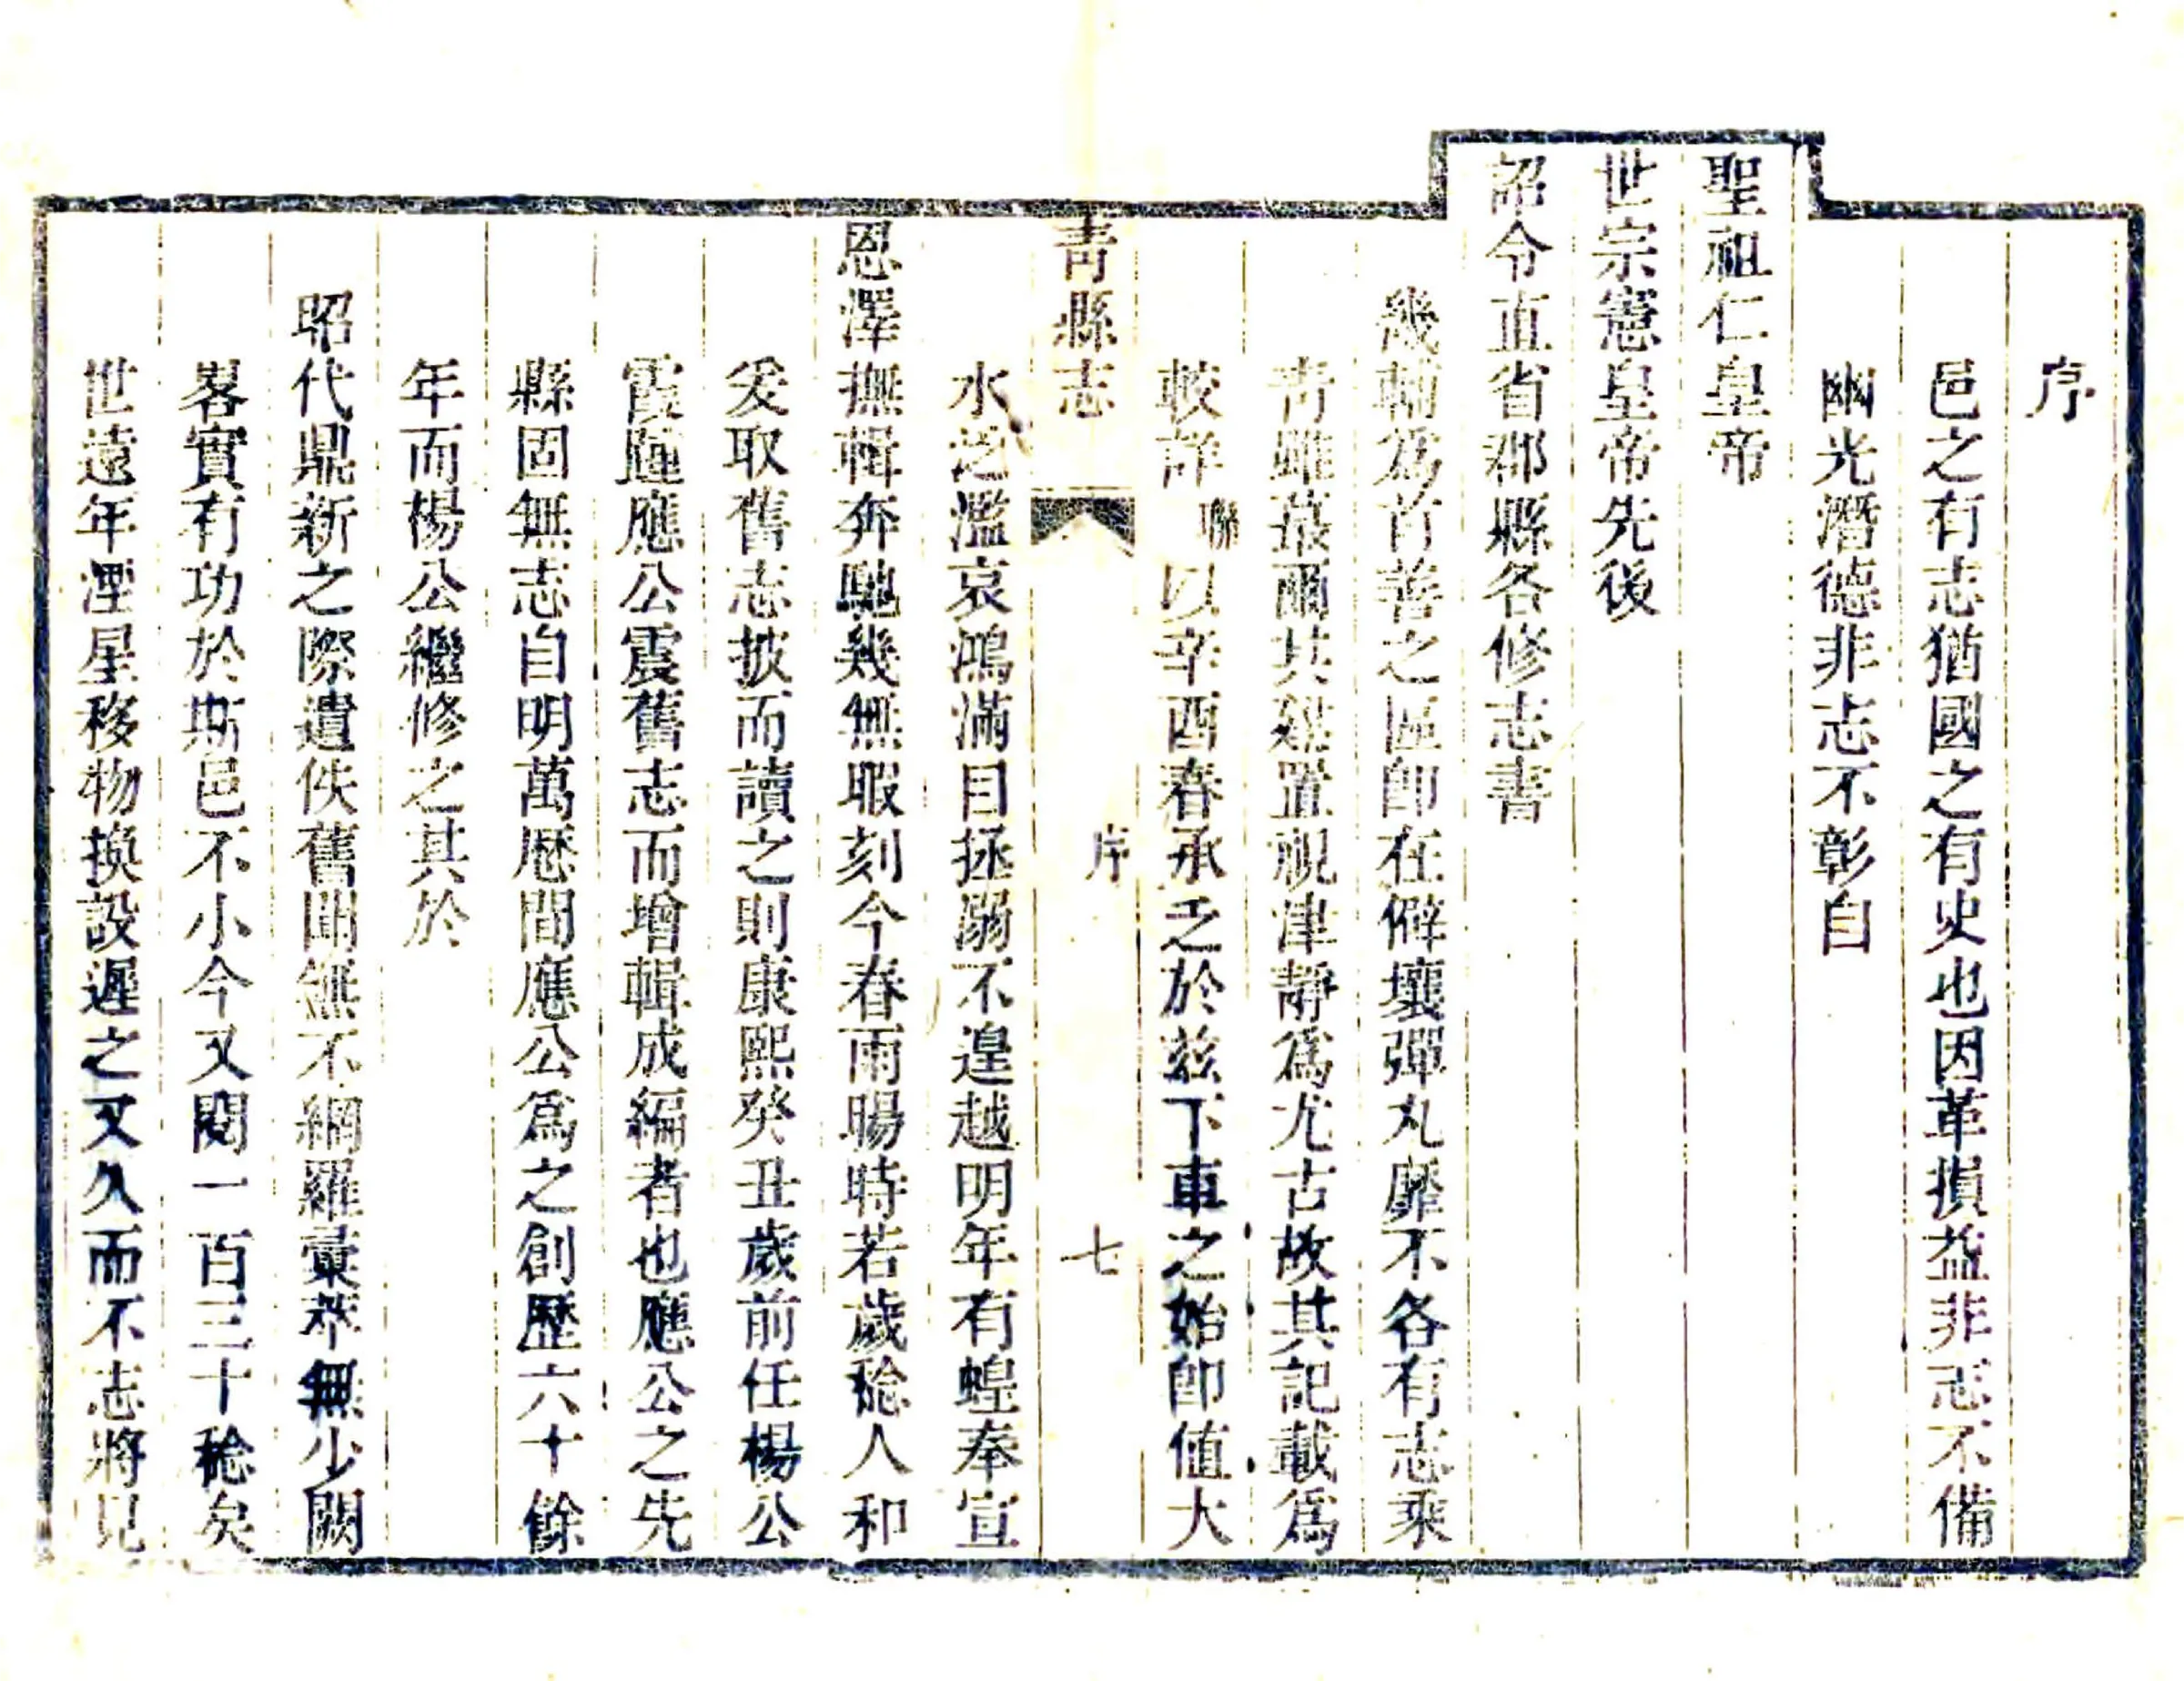 序
邑之有志猶國之有史也因革損益非志不備
幽光潛德非志不彰自
聖祖仁皇帝
世宗憲皇帝先後
詔令直省郡縣各修志書
畿輔爲首善之區卽在僻壤彈丸靡不各有志乘
青雖蕞爾其建置視津靜爲尤古故其記載爲
較詳聯以辛酉春承乏於兹下車之始卽値大
青縣志
序
七
水泛濫哀鴻滿目拯溺不遑越明年有蝗奉宣
恩澤撫輯奔馳幾無暇刻今春雨暘時若歲稔人和
爰取舊志披而讀之則康熙癸丑歲前任楊公
霞踵應公震舊志而增輯成編者也應公之先
縣固無志自明萬厯間應公爲之創歷六十餘
年而楊公繼修之其於
昭代鼎新之際遺佚舊聞無不網羅彙萃無少闕
畧實有功於斯邑不小今又閱一百三十稔矣
世遠年湮星移物換設遲之又久而不志將見